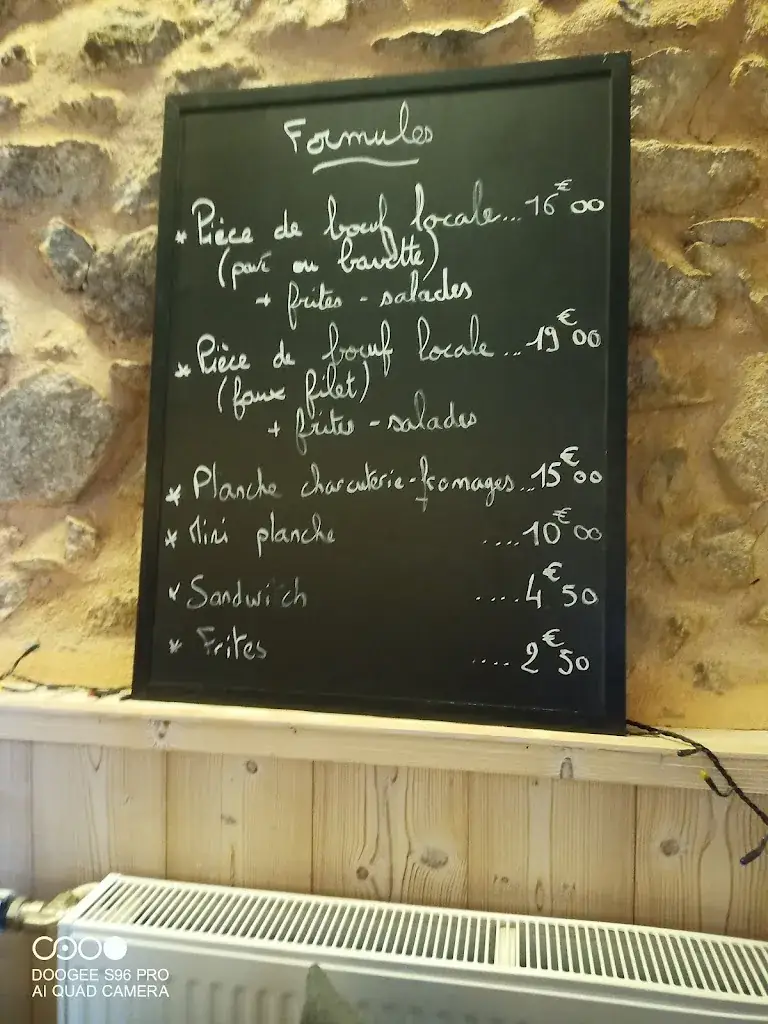 Formules
* Pièce de bœuf locale... 16€00
(pavé ou bavette)
+ frites - salades
* Pièce de bœuf locale ... 19€00
(faux filet)
+ frites - salades
* Planche charcuterie-fromages... 15€00
* Mini planche .... 10€00
* Sandwich .... 4€50
* Frites .... 2€50
DOOGEE S96 PRO
AI QUAD CAMERA